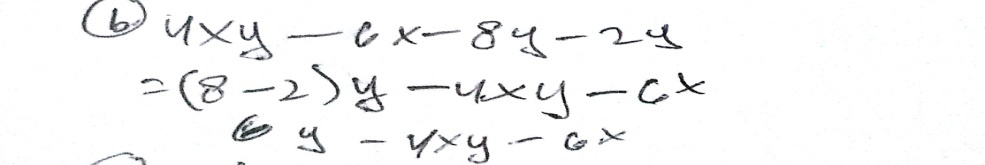 (b) 4xy - 6x - 8y - 2y
= (8 - 2) y - 4xy - 6x
6 y - 4xy - 6x